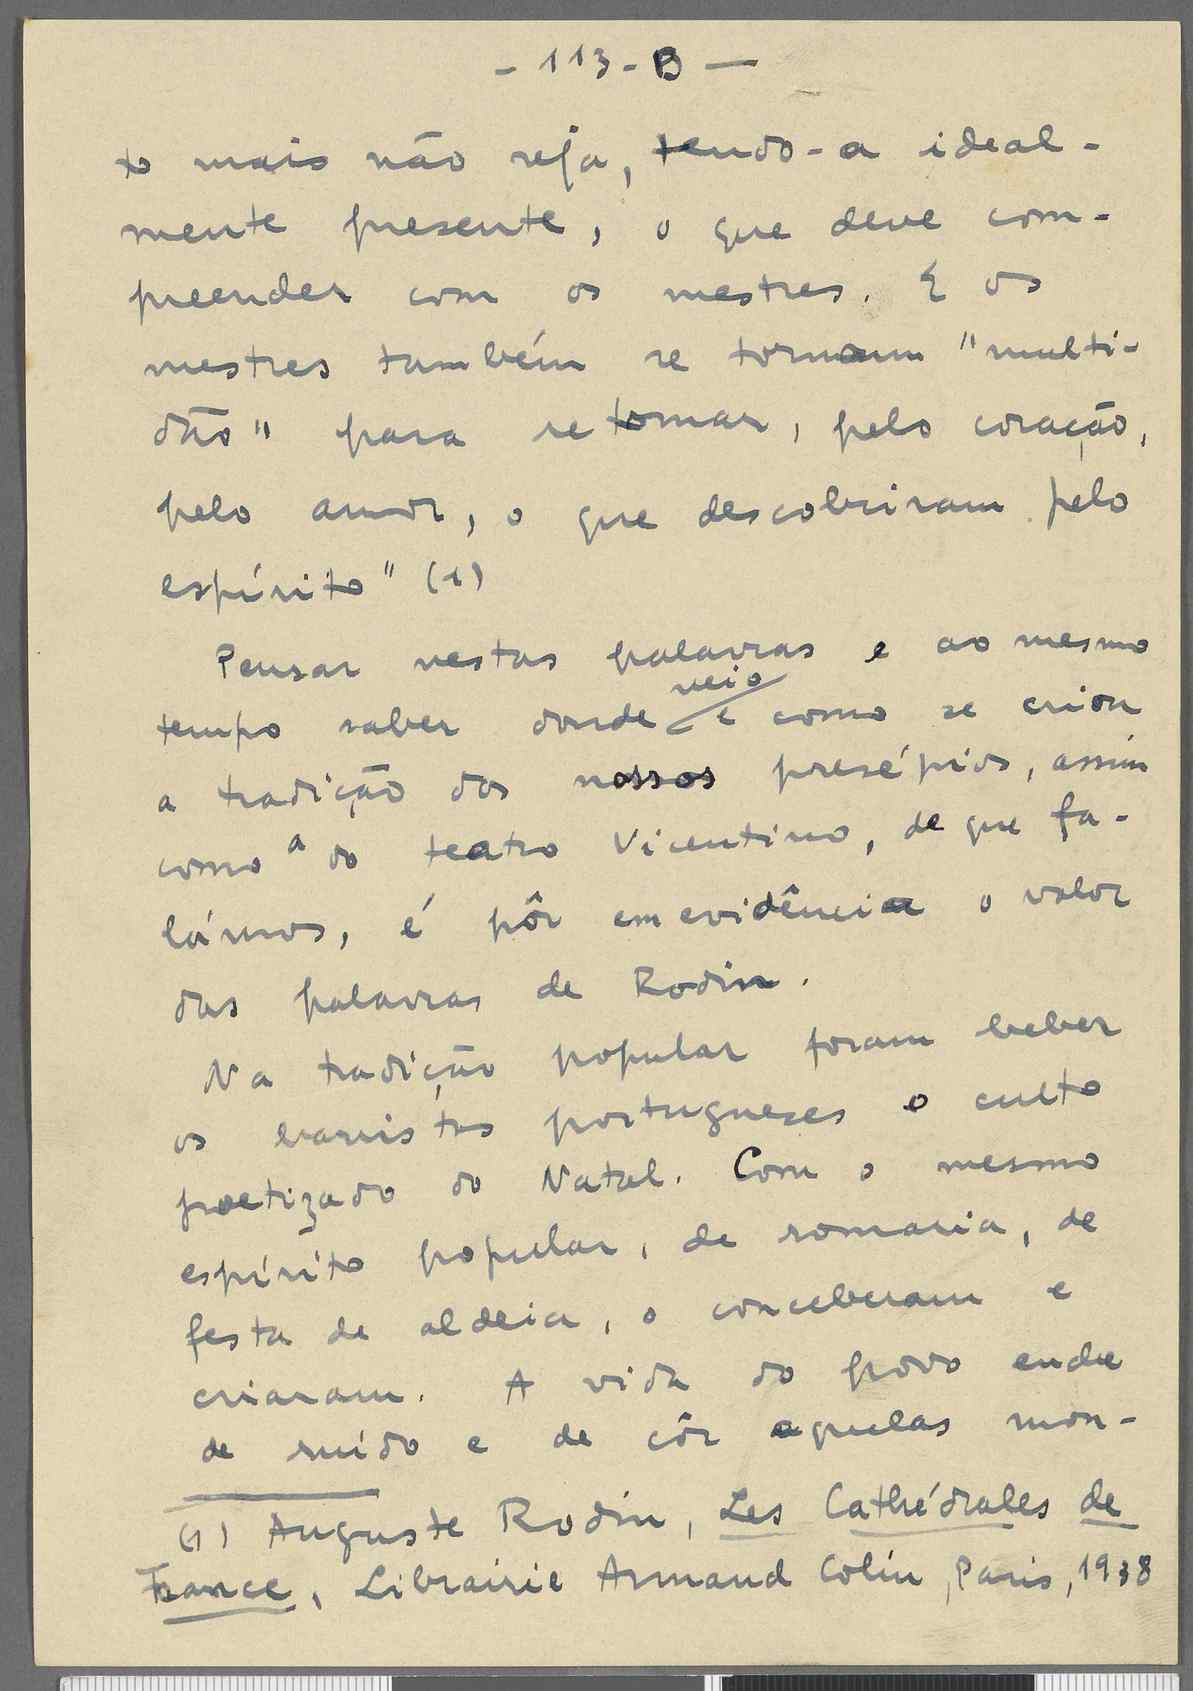 - 113 - B —
to mais não seja, tendo-a ideal-
mente presente, o que deve com-
preender com os mestres. E os
mestres também se tornam "multi-
dão" para retomar, pelo coração,
pelo amor, o que descobriram pelo
espírito" (1)
Pensar nestas palavras e ao mesmo
veio
tempo saber donde e como se criou
a tradição dos nossos presépios, assim
como a do teatro Vicentino, de que fa-
lámos, é pôr em evidência o valor
das palavras de Rodin.
Na tradição popular foram beber
os barristas portugueses o culto
poetizado do Natal. Com o mesmo
espírito popular, de romaria, de
festa de aldeia, o conceberam e
criaram. A vida do povo enche
de ruído e de côr aquelas mon-
(1) Auguste Rodin, Les Cathédrales de
France, Librairie Armand Colin, Paris, 1938